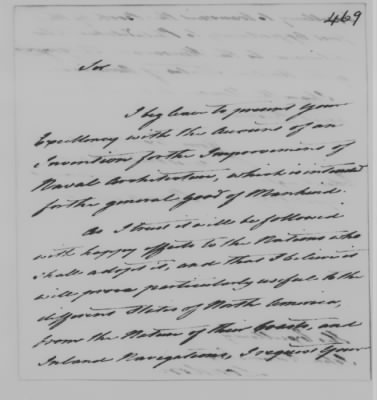 469
Sir
I beg leave to present Your
Excellency with the Account of an
Invention for the Improvement of
Naval Architecture, which is intended
for the general Good of Mankind.
As I trust it will be followed
with happy effects to the Nations who
shall adopt it, and that I believe it
will prove particularly useful to the
different States of North America,
from the Nature of their Coasts, and
Inland Navigations, I request Your